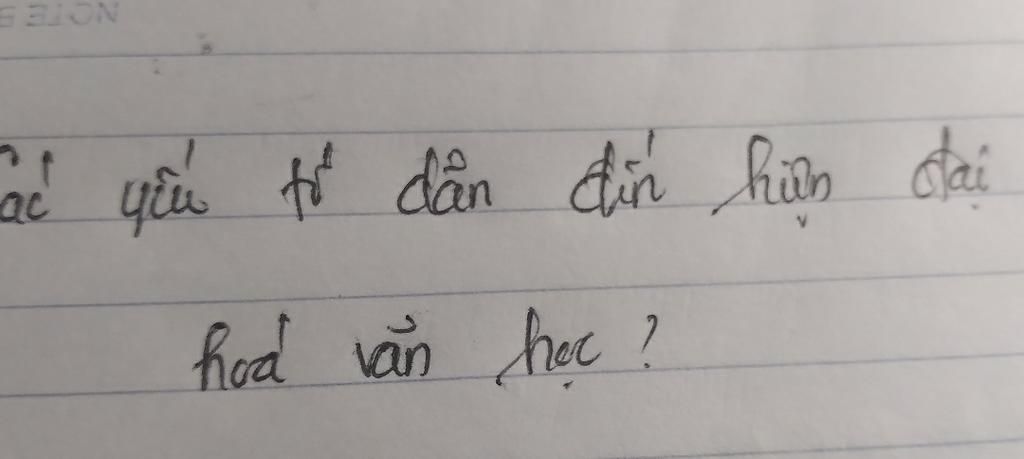 NOTE B
các yếu tố dẫn đến hiện đại
hoá văn học?